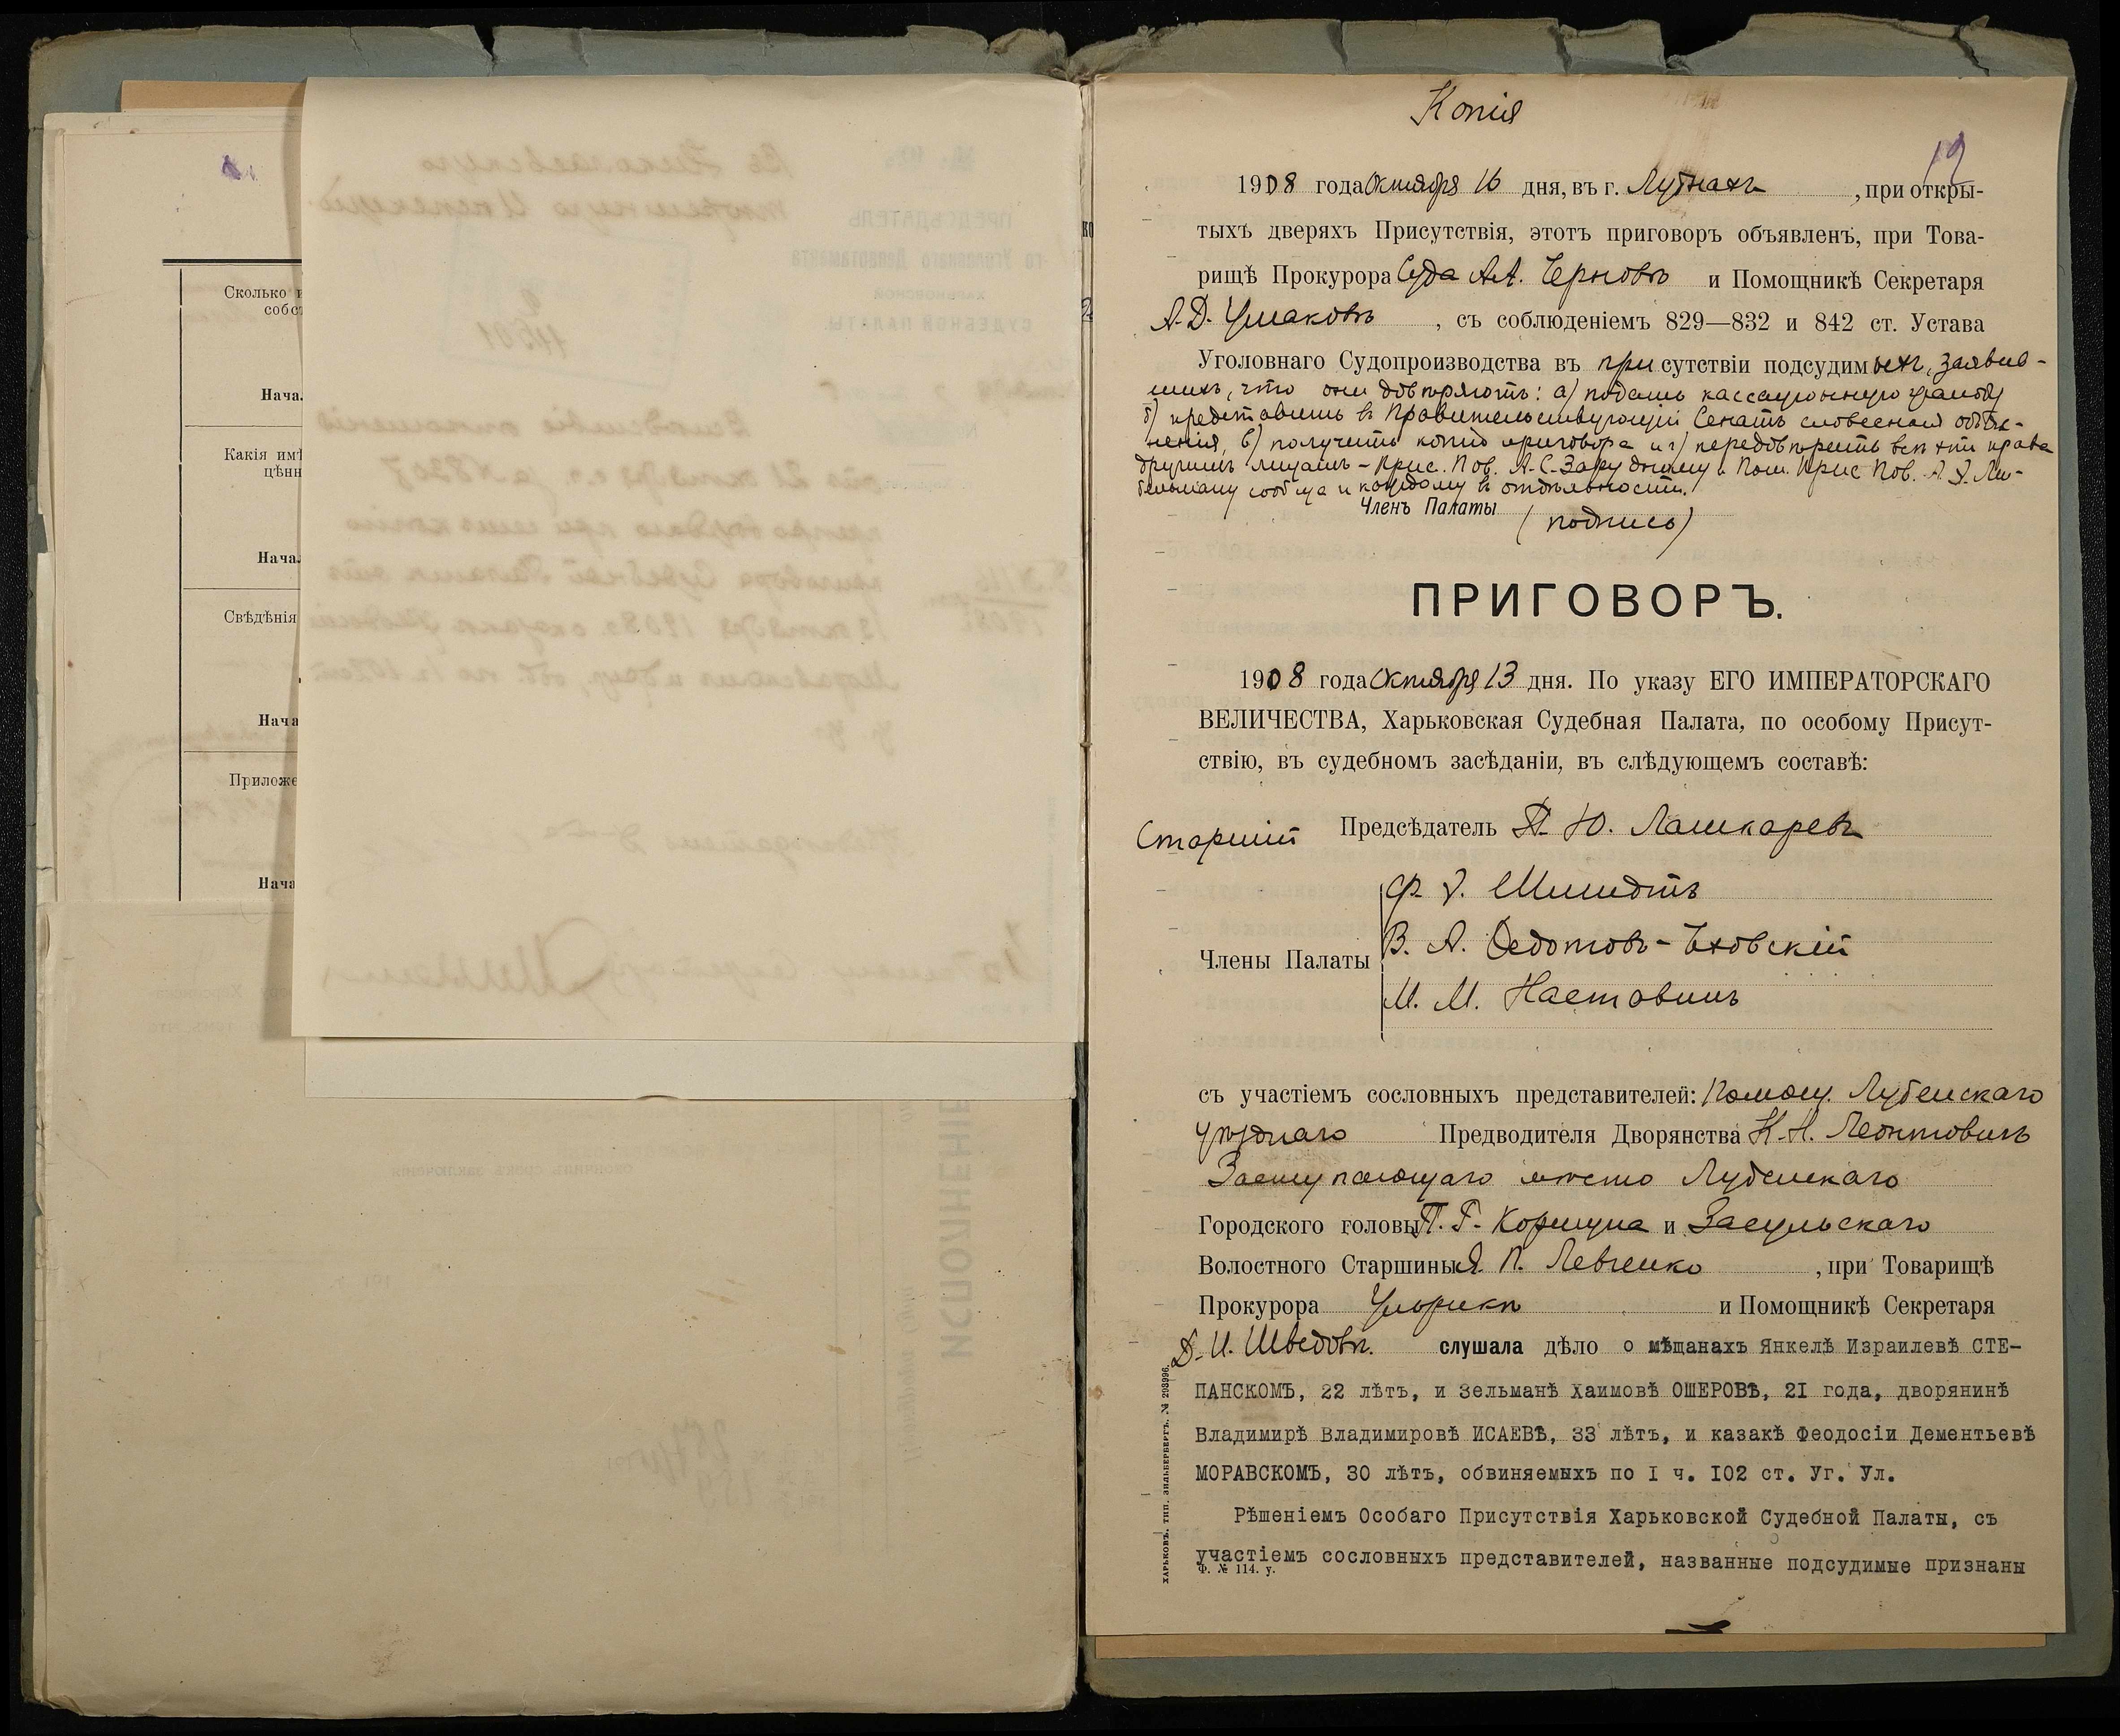 Сколько и
собст
Начал
Какія имѣ
цѣнн
Начал
Свѣдѣнія
Нача
Приложе
Нача
Копія
12
1908 года Октября 16 дня, въ г. Лубнахъ, при откры-
тыхъ дверяхъ Присутствія, этотъ приговоръ объявленъ, при Това-
рищѣ Прокурора Суда А.А. Черновѣ и Помощникѣ Секретаря
А.Д. Ушаковѣ, съ соблюденіемъ 829—832 и 842 ст. Устава
Уголовнаго Судопроизводства въ присутствіи подсудимыхъ, заявив-
шихъ, что они довѣряютъ: а) подать кассаціонную жалобу
б) представить въ Правительствующій Сенатъ словесныя объяс-
ненія, в) получить копію приговора и г) передовѣрить всѣ эти права
другимъ лицамъ - Прис. Пов. А.С. Зарудному и Пом. Прис. Пов.
сообща и каждому въ отдѣльности.
Членъ Палаты (подпись)
ПРИГОВОРЪ.
1908 года Октября 13 дня. По указу ЕГО ИМПЕРАТОРСКАГО
ВЕЛИЧЕСТВА, Харьковская Судебная Палата, по особому Присут-
ствію, въ судебномъ засѣданіи, въ слѣдующемъ составѣ:
Старшій Предсѣдатель П. Ю. Лашкаревъ
Шмидтъ
Члены Палаты В. А. Федотовъ-Чеховскій
М. М. Настовинъ
съ участіемъ сословныхъ представителей: Помощ. Лубенскаго
Уѣзднаго Предводителя Дворянства К. Н. Леонтовичъ
Заступающаго мѣсто Лубенскаго
Городского головы П. Г. Коршуна и Засульскаго
Волостного Старшины Я. П. Левченко, при Товарищѣ
Прокурора и Помощникѣ Секретаря
Д. И. Шведовѣ. слушала дѣло о мѣщанахъ Янкелѣ Израилевѣ СТЕ-
ПАНСКОМЪ, 22 лѣтъ, и Зельманѣ Хаимовѣ ОШЕРОВѢ, 2I года, дворянинѣ
Владимирѣ Владимировѣ ИСАЕВѢ, 33 лѣтъ, и казакѣ Феодосіи Дементьевѣ
МОРАВСКОМЪ, 30 лѣтъ, обвиняемыхъ по I ч. I02 ст. Уг. Ул.
Рѣшеніемъ Особаго Присутствія Харьковской Судебной Палаты, съ
участіемъ сословныхъ представителей, названные подсудимые признаны
Ф. № 114. у.
ХАРЬКОВЪ. ТИП. ЗИЛЬБЕРБЕРГЪ. № 203996.